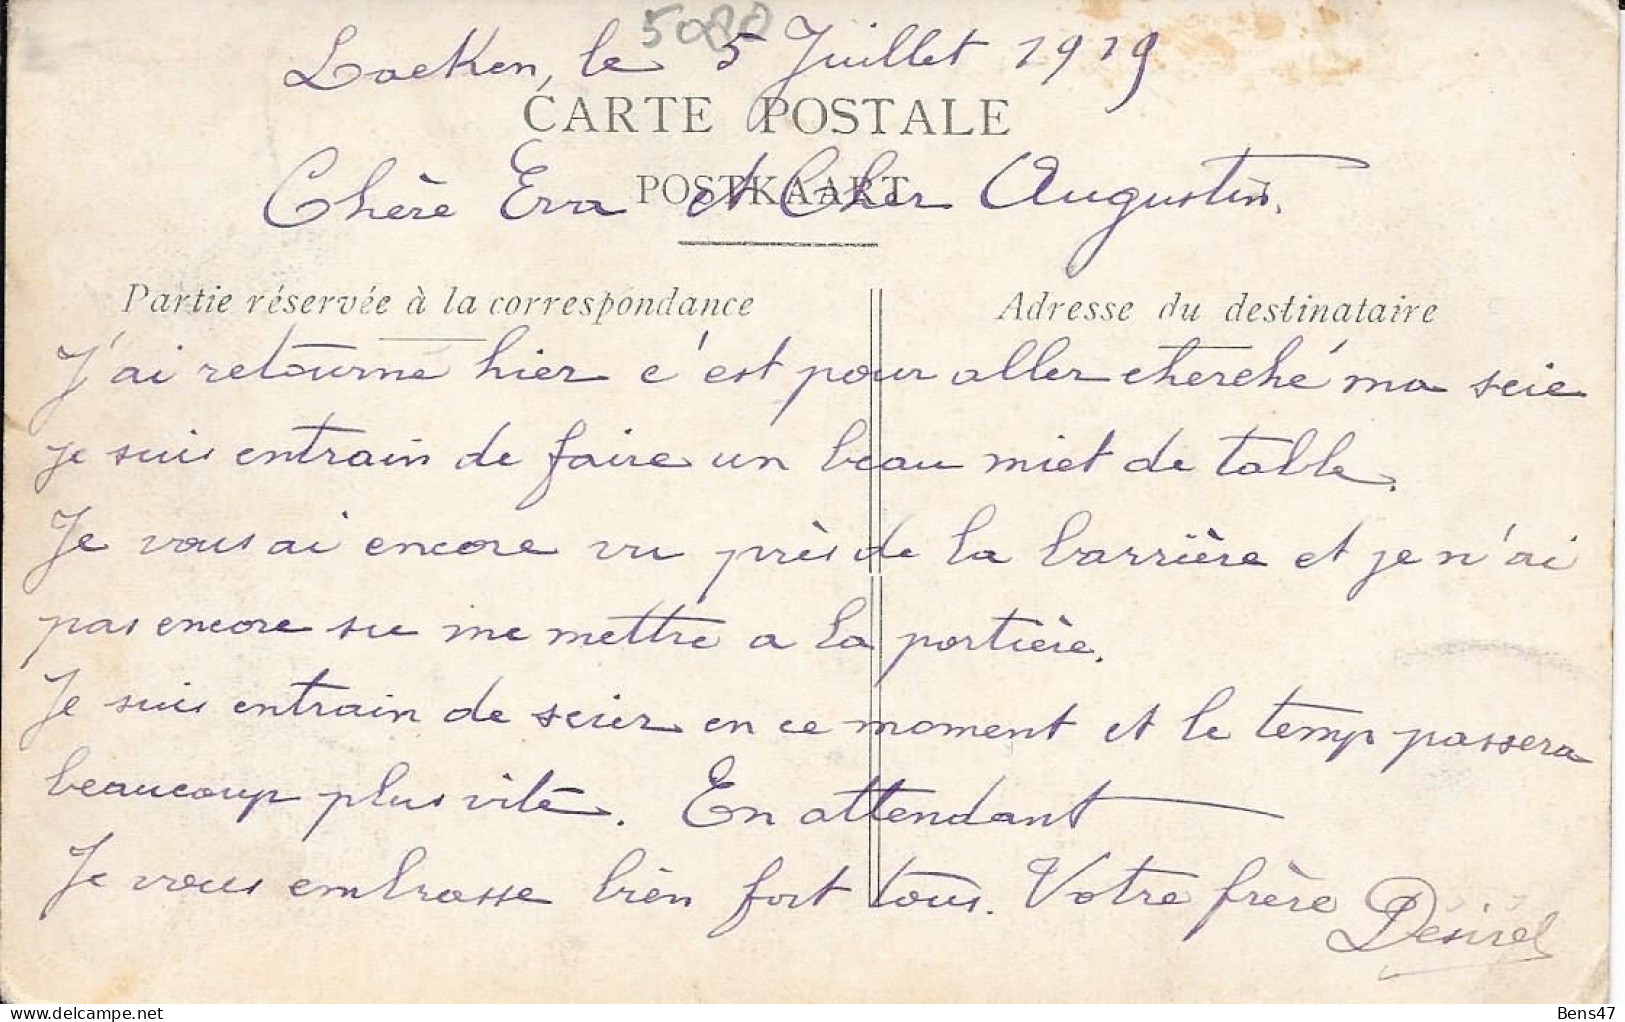 5088
Laeken, le 5 Juillet 1919
CARTE POSTALE
POSTKAART
Chère Eva et Cher Augustin.
Partie réservée à la correspondance
Adresse du destinataire
J'ai retourné hier c'est pour aller cherché ma scie
je suis entrain de faire un beau miet de table.
Je vous ai encore vu près de la barrière et je n'ai
pas encore su me mettre a la portière.
Je suis entrain de scier en ce moment et le temp passera
beaucoup plus vite. En attendant
Je vous embrasse bien fort tous. Votre frère
Desiré
Bens47